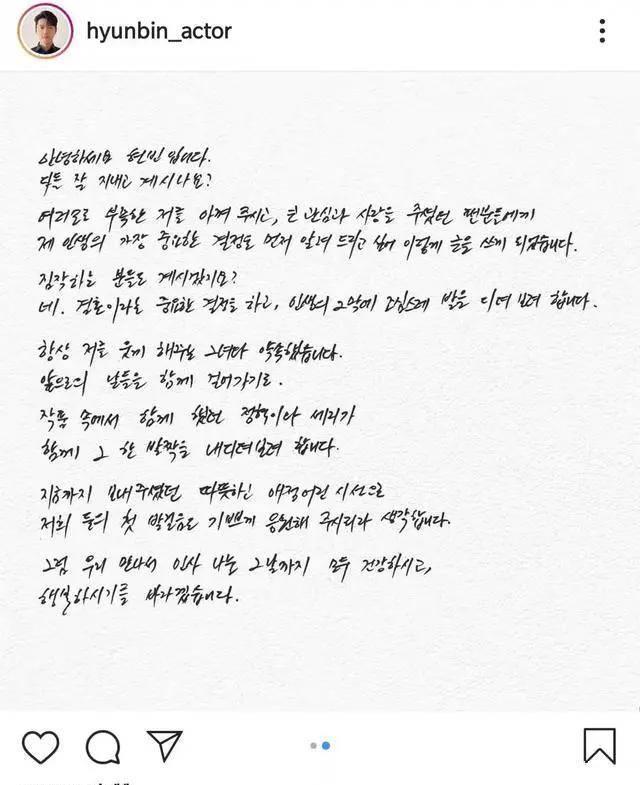 hyunbin_actor
안녕하세요 현빈입니다.
다들 잘 지내고 계시나요?
여러모로 부족한 저를 아껴 주시고, 큰 관심과 사랑을 주셨던 팬분들에게
제 인생의 가장 중요한 결정을 먼저 알려 드리고 싶어 이렇게 글을 쓰게 되었습니다.
짐작하는 분들도 계시겠지요?
네. 결혼이라는 중요한 결정을 하고, 인생의 2막에 조심스레 발을 디뎌 보려 합니다.
항상 저를 웃게 해주는 그녀와 약속했습니다.
앞으로의 날들을 함께 걸어가기로.
작품 속에서 함께 했던 정혁이와 세리가
함께 그 한 발짝을 내디뎌보려 합니다.
지금까지 보내주셨던 따뜻하신 애정어린 시선으로
저희 둘의 첫 발걸음도 기쁘게 응원해 주시리라 생각합니다.
그럼 우리 만나서 인사 나눌 그날까지 모두 건강하시고,
행복하시기를 바라겠습니다.